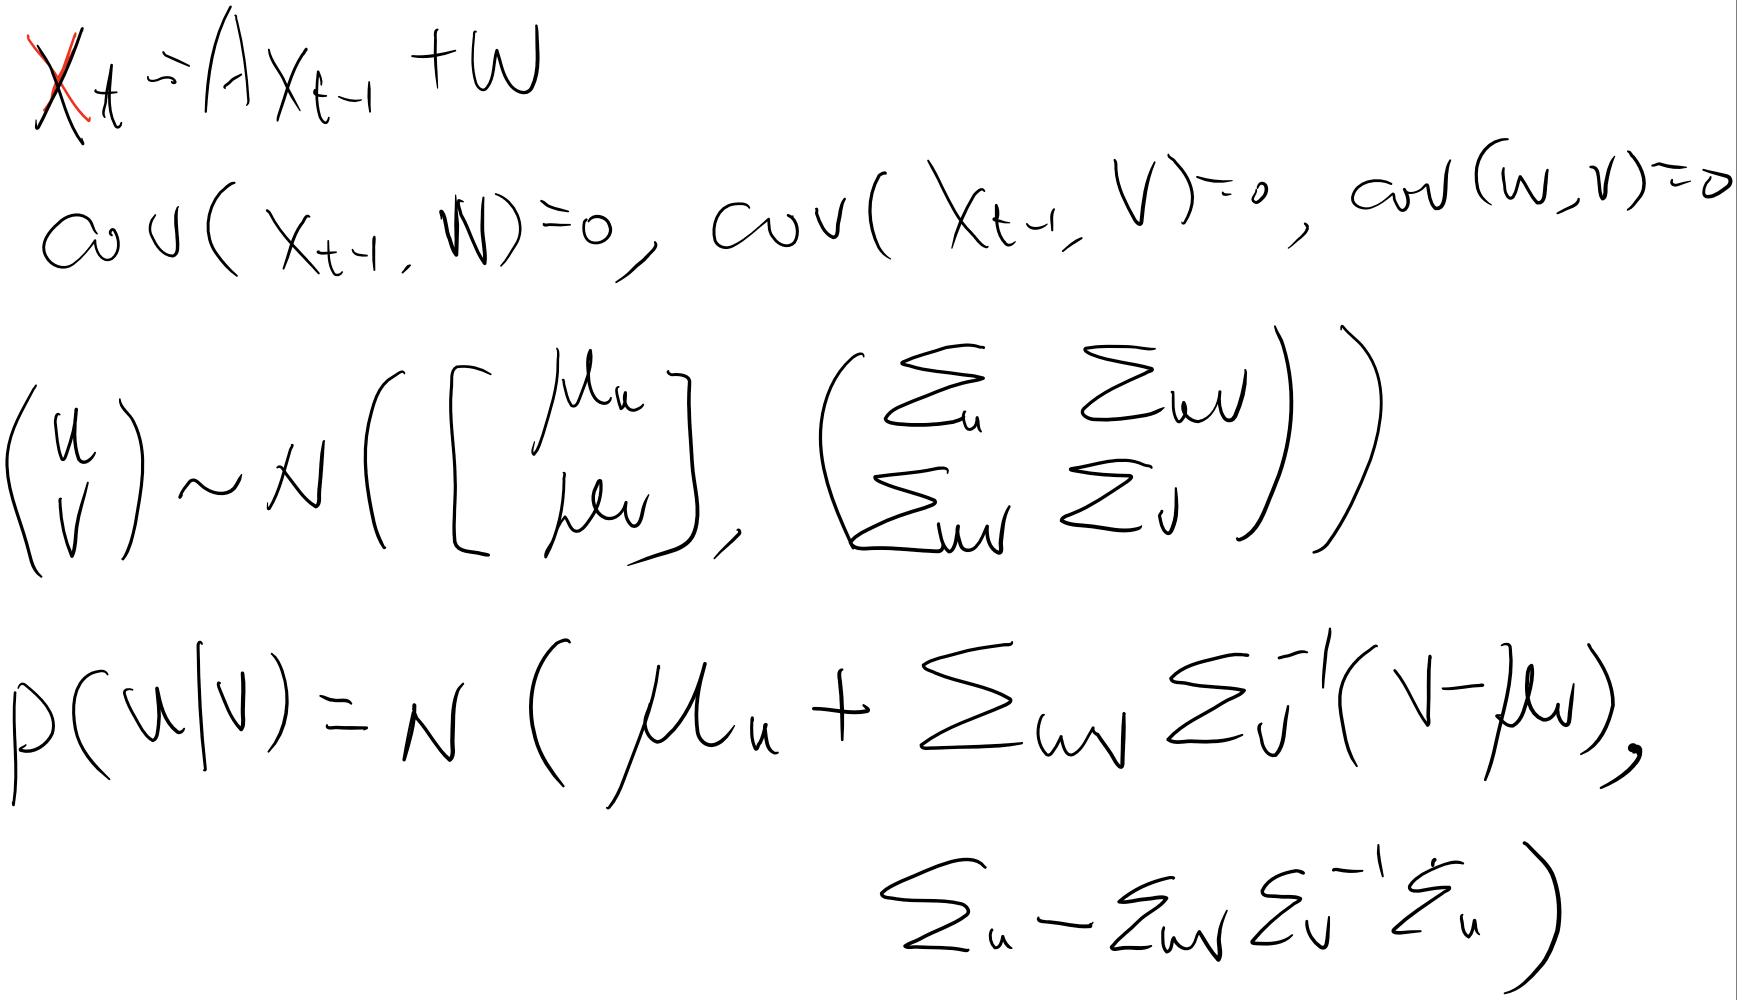 X_t = A X_{t-1} + W
cov(X_{t-1}, W) = 0, cov(X_{t-1}, V) = 0, cov(W, V) = 0
(u v) ~ N([μ_u μ_v], (Σ_u Σ_uv Σ_uv Σ_v))
p(u|v) = N(μ_u + Σ_uv Σ_v^{-1}(v - μ_v),
Σ_u - Σ_uv Σ_v^{-1} Σ_u)